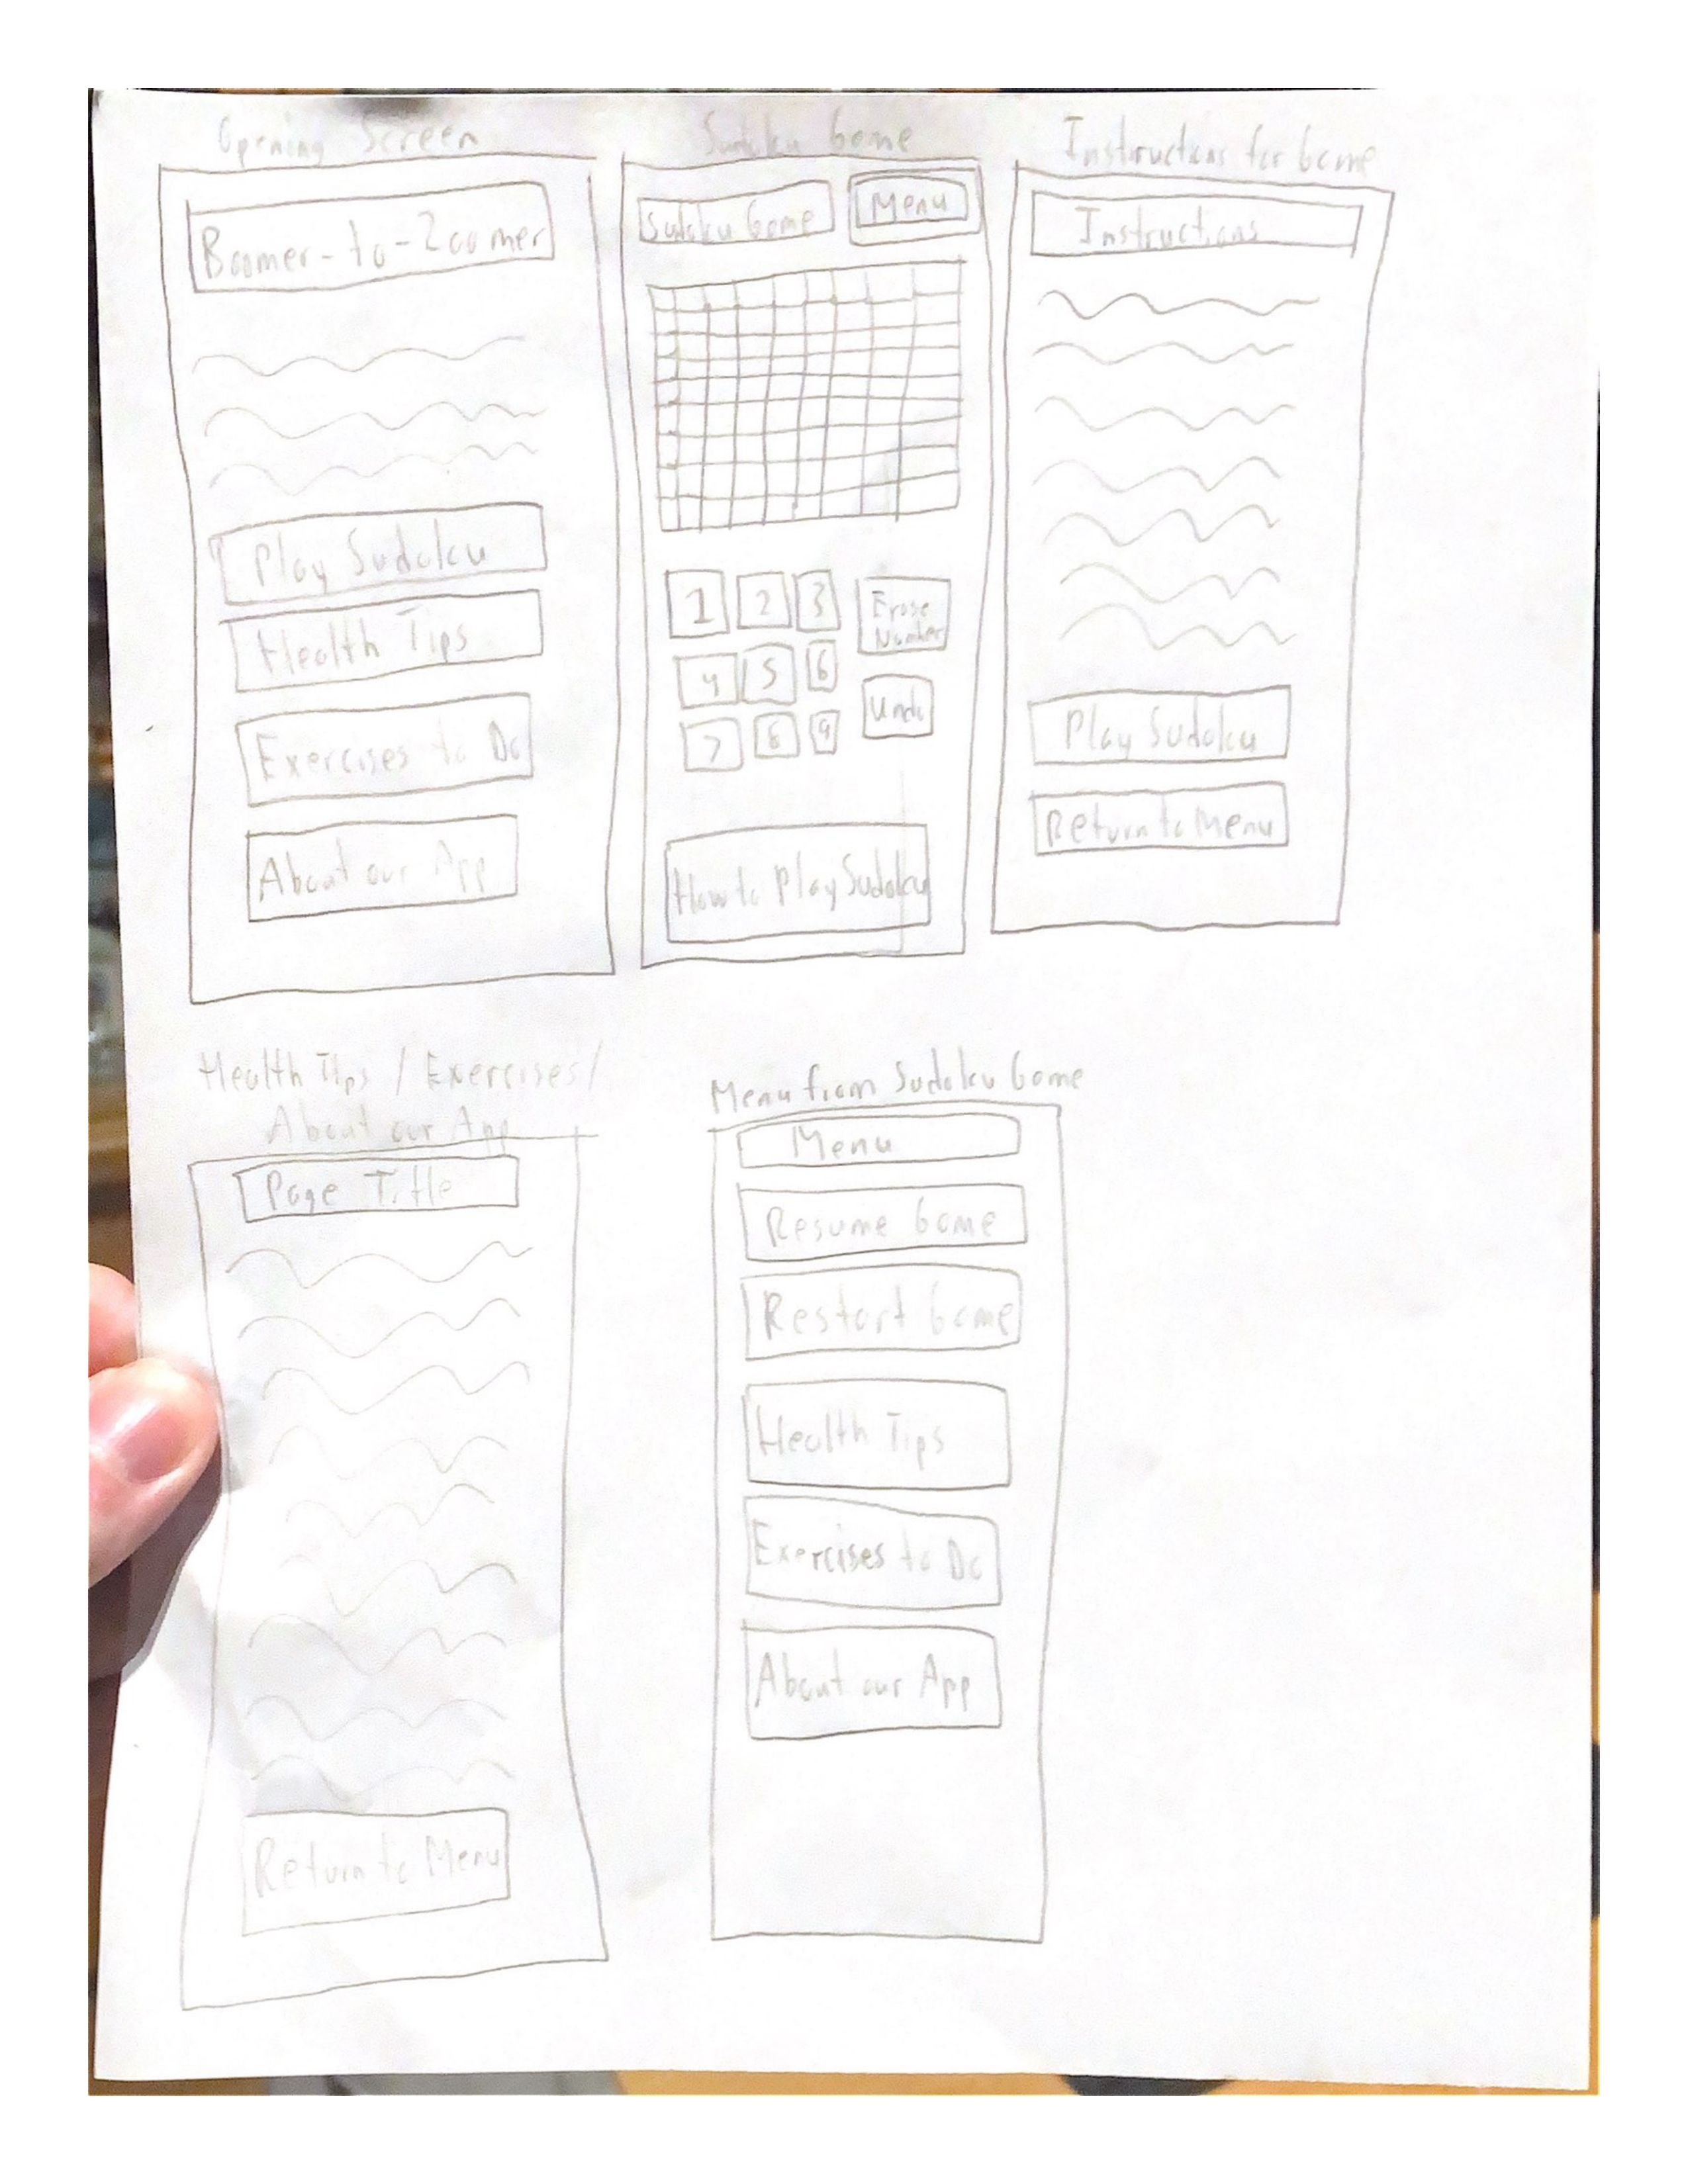 Opening Screen
Boomer-to-Zoomer
Play Sudoku
Health Tips
Exercises to Do
About our App
Sudoku Game
Sudoku Game
Menu
1 2 3
Erase
Number
4 5 6
Undo
7 8 9
How to Play Sudoku
Instructions for Game
Instructions
Play Sudoku
Return to Menu
Health Tips / Exercises/
About our App
Page Title
Return to Menu
Menu from Sudoku Game
Menu
Resume Game
Restart Game
Health Tips
Exercises to Do
About our App